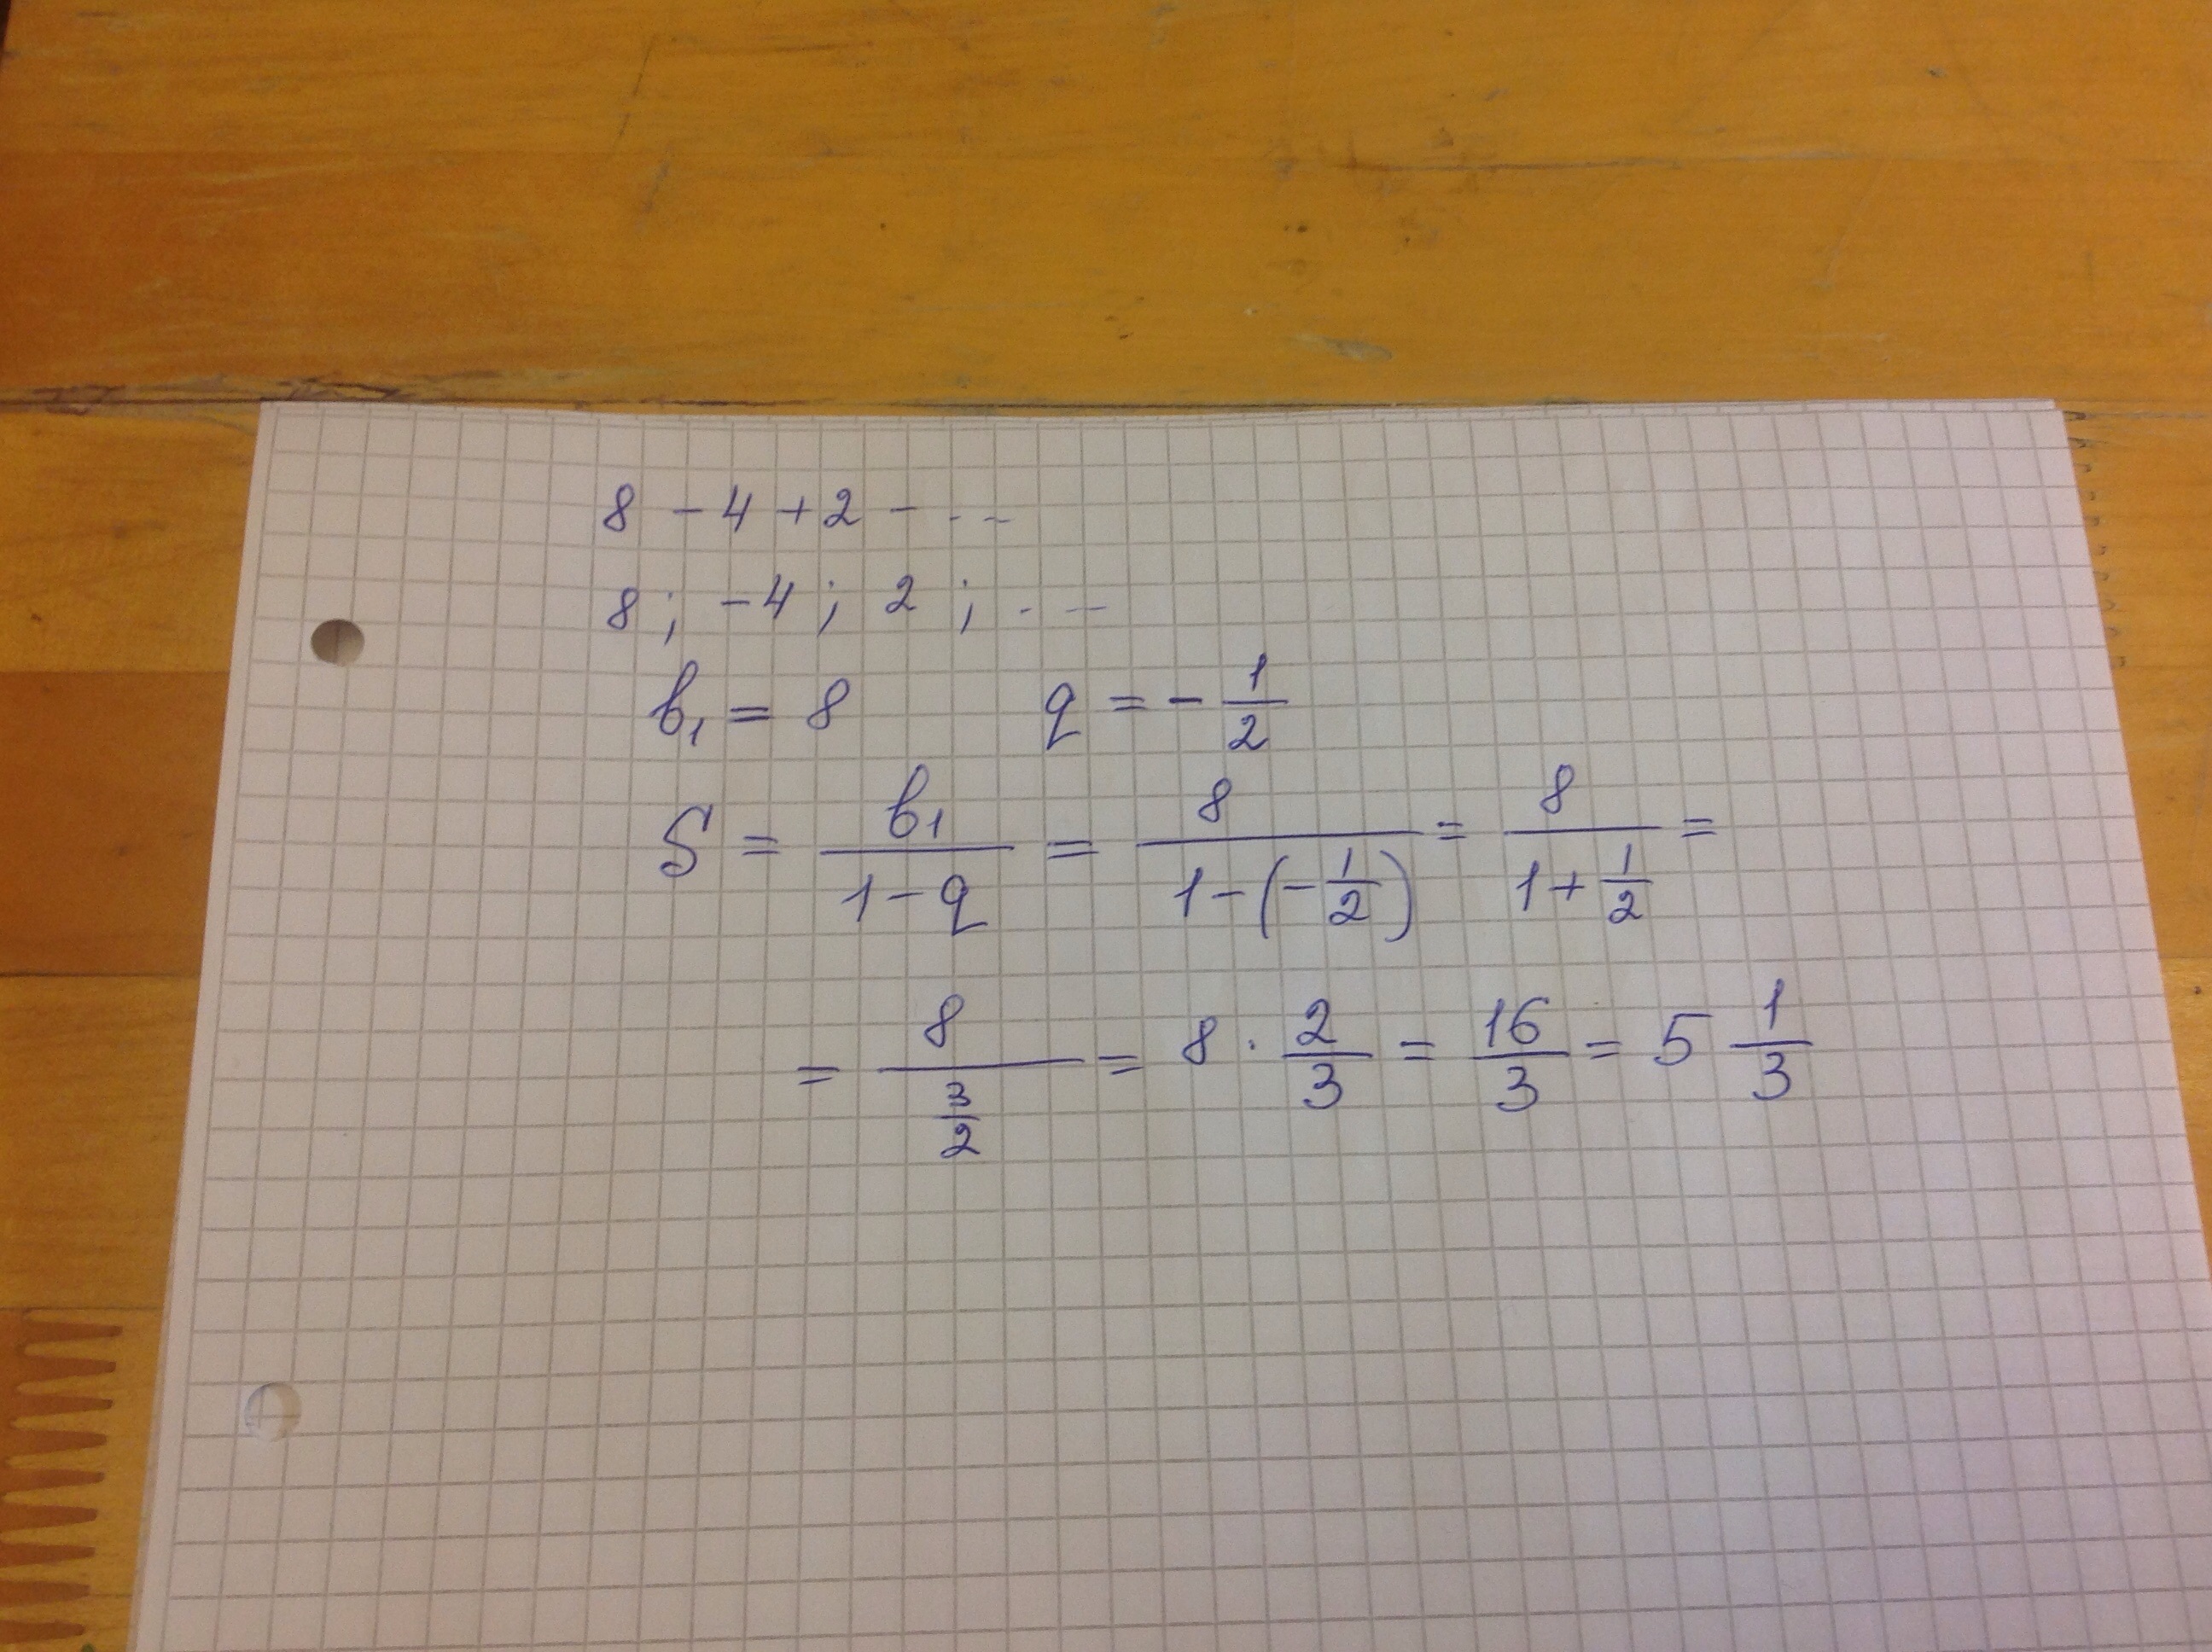 8 - 4 + 2 - ...
8 ; -4 ; 2 ; ...
b₁ = 8 q = - 1/2
S = b₁/(1-q) = 8/(1-(-1/2)) = 8/(1+1/2) =
= 8/(3/2) = 8 · 2/3 = 16/3 = 5 1/3